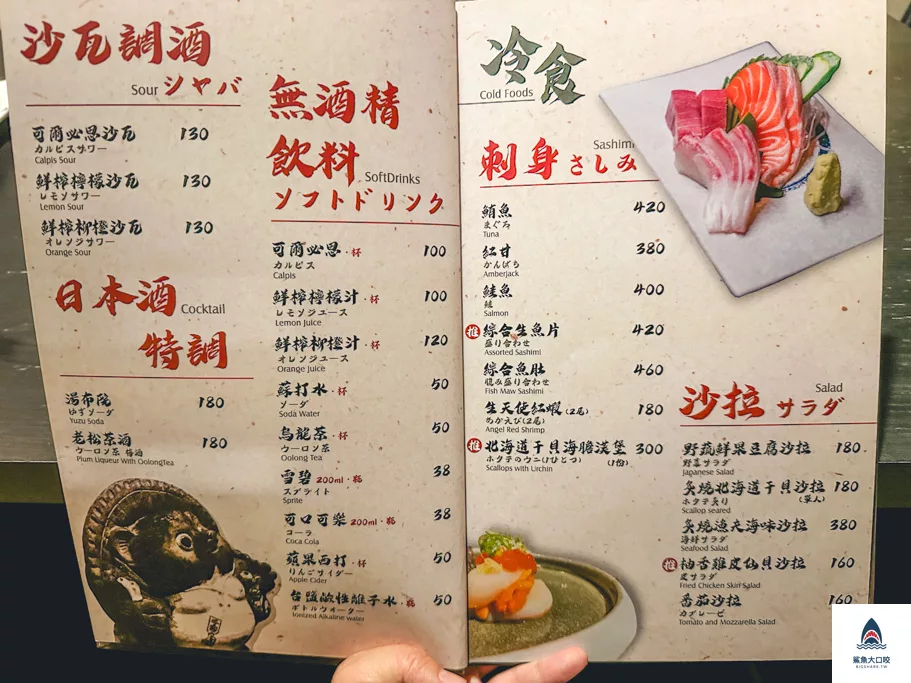 沙瓦調酒
Sour シャバ
可爾必思沙瓦 130
カルピスサワー
Calpis Sour
鮮榨檸檬沙瓦 130
レモンサワー
Lemon Sour
鮮榨柳橙沙瓦 130
オレンジサワー
Orange Sour
日本酒 Cocktail
特調
湯布院 180
ゆずソーダ
Yuzu Soda
老松茶酒 180
ウーロン茶 梅酒
Plum Liqueur With OolongTea
無酒精
飲料 SoftDrinks
ソフトドリンク
可爾必思·杯 100
カルピス
Calpis
鮮榨檸檬汁·杯 100
レモンジュース
Lemon Juice
鮮榨柳橙汁·杯 120
オレンジジュース
Orange Juice
蘇打水·杯 50
ソーダ
Soda Water
烏龍茶·杯 50
ウーロン茶
Oolong Tea
雪碧 200ml·瓶 38
スプライト
Sprite
可口可樂 200ml·瓶 38
コーラ
Coca Cola
蘋果西打·瓶 50
りんごサイダー
Apple Cider
台鹽鹼性離子水·瓶 50
ボトルウォーター
Ionized Alkaline water
冷食
Cold Foods
Sashimi
刺身 さしみ
鮪魚 420
まぐろ
Tuna
紅甘 380
かんぱち
Amberjack
鮭魚 400
鮭
Salmon
推 綜合生魚片 420
盛り合わせ
Assorted Sashimi
綜合魚肚 460
腹み盛り合わせ
Fish Maw Sashimi
生天使紅蝦(2尾) 180
あかえび(2尾)
Angel Red Shrimp
推 北海道干貝海膽漢堡 300
ホタテのウニ(1ひとつ) (1份)
Scallops with Urchin
Salad
沙拉 サラダ
野蔬鮮果豆腐沙拉 180
野菜サラダ
Japanese Salad
炙燒北海道干貝沙拉 180
ホタテ炙り (單人)
Scallop seared
炙燒漁夫海味沙拉 380
海鮮サラダ
Seafood Salad
推 柚香雞皮仙貝沙拉 160
皮サラダ
Fried Chicken Skin Salad
番茄沙拉 160
カプレーゼ
Tomato and Mozzarella Salad
鯊魚大口咬
BIGSHARK.TW